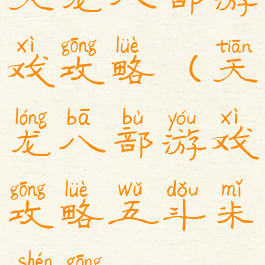 天龙八部游
xì gōng lüè tiān
戏攻略（天
lóng bā bù yóu xì
龙八部游戏
gōng lüè wǔ dǒu mǐ
攻略五斗米
shén gōng